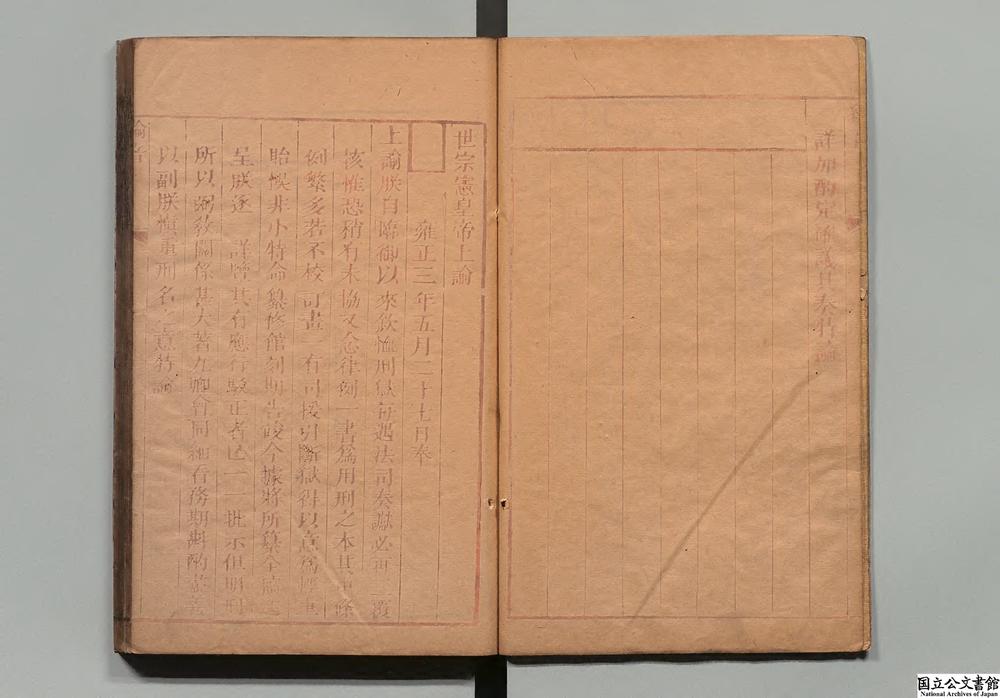 詳加酌定條議具奏特諭
世宗憲皇帝上諭
雍正三年五月二十七日奉
上諭朕自臨御以來欽恤刑獄每遇法司奏讞必再三覆
核惟恐稍有未協又念律例一書爲用刑之本其中條
例繁多若不校訂畫一有司援引斷獄得以意爲輕重
貽悞非小特命纂修館刻期告竣今據將所纂全稿進
呈朕逐一詳覽其有應行駁正者已一一批示但明刑
所以弼教關係甚大著九卿會同細看務期斟酌盡善
以副朕慎重刑名之意特諭
国立公文書館
National Archives of Japan